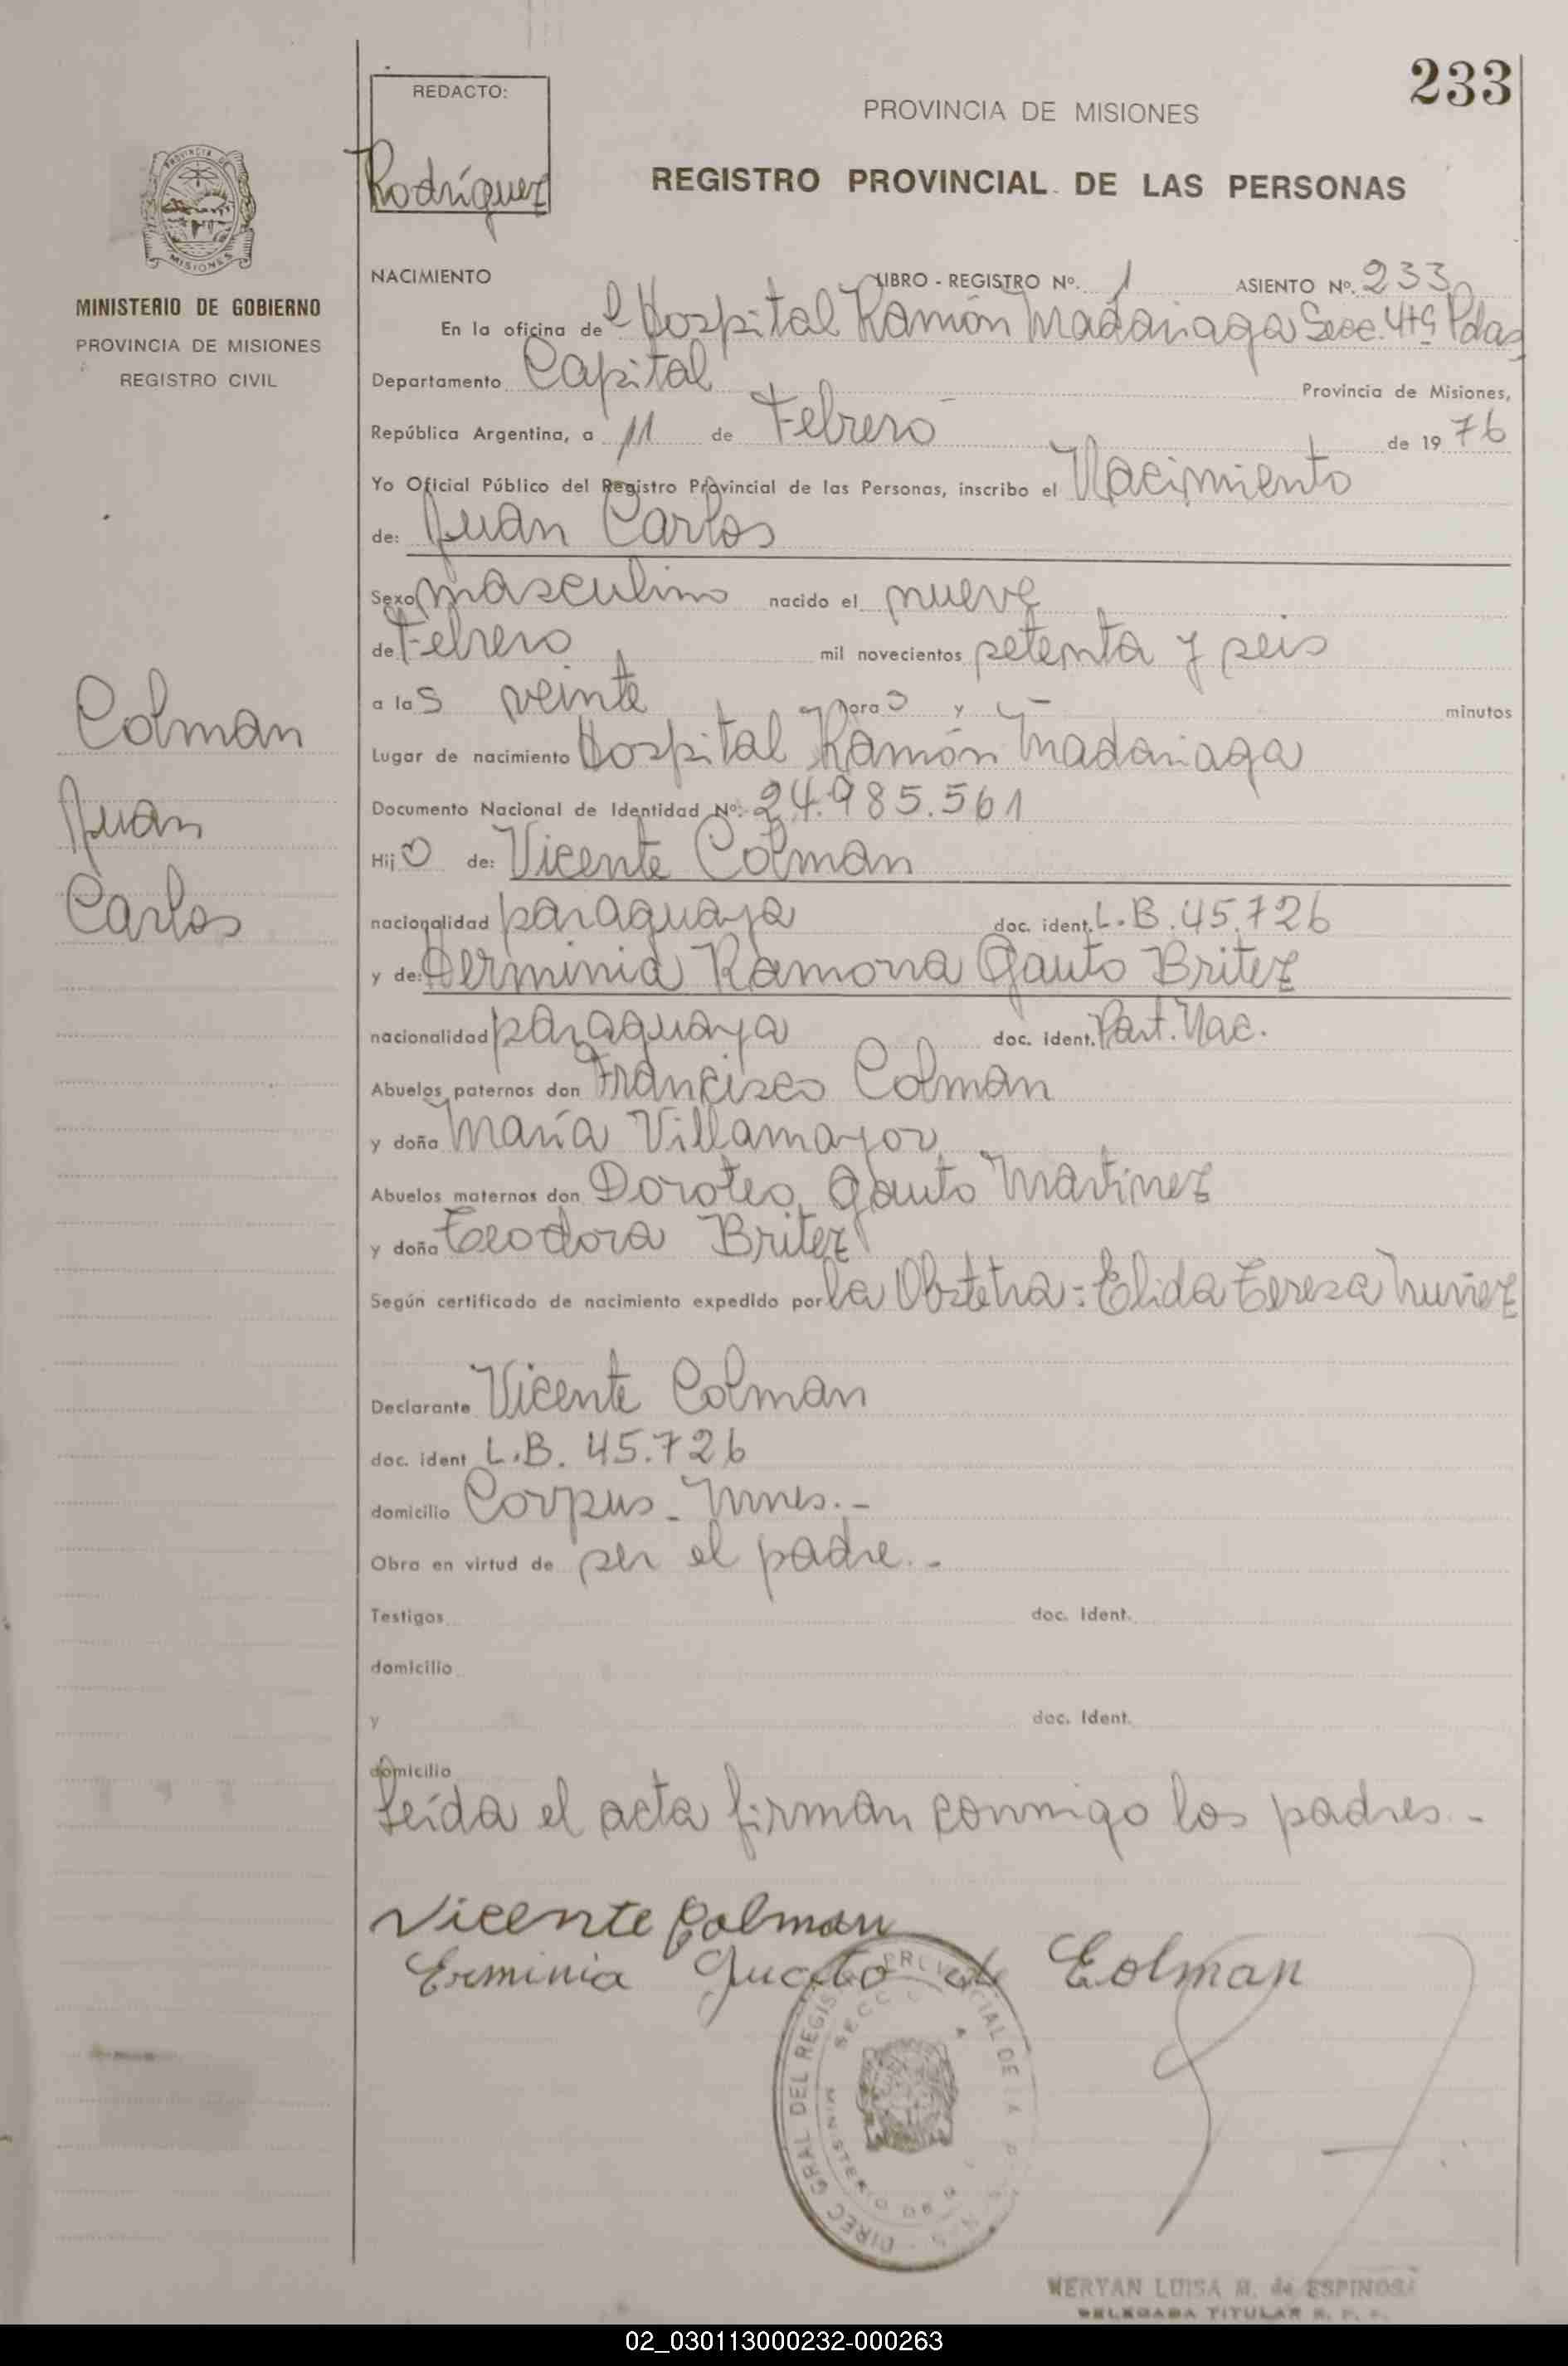 233
REDACTO:
Rodríguez
PROVINCIA DE MISIONES
REGISTRO PROVINCIAL DE LAS PERSONAS
PROVINCIA DE
MISIONES
MINISTERIO DE GOBIERNO
PROVINCIA DE MISIONES
REGISTRO CIVIL
NACIMIENTO LIBRO - REGISTRO Nº. 1 ASIENTO Nº. 233
En la oficina del Hospital Ramón Madariaga Secc. 4ta Pdas
Departamento Capital Provincia de Misiones,
República Argentina, a 11 de Febrero de 1976
Yo Oficial Público del Registro Provincial de las Personas, inscribo el Nacimiento
de: Juan Carlos
Sexo masculino nacido el nueve
de Febrero mil novecientos setenta y seis
a las veinte horas y — minutos
Lugar de nacimiento Hospital Ramón Madariaga
Documento Nacional de Identidad Nº. 24.985.561
Hijo de: Vicente Colman
nacionalidad paraguaya doc. ident. L.B. 45.726
y de: Herminia Ramona Gauto Britez
nacionalidad paraguaya doc. ident. Part. Nac.
Abuelos paternos don Francisco Colman
y doña María Villamayor
Abuelos maternos don Doroteo Gauto Martinez
y doña Teodora Britez
Según certificado de nacimiento expedido por la Obstetra: Elida Teresa Nuñez
Declarante Vicente Colman
doc. ident L.B. 45.726
domicilio Corpus - Mnes. -
Obra en virtud de ser el padre. -
Testigos doc. Ident.
domicilio
y doc. Ident.
domicilio
Leída el acta firman conmigo los padres. -
Colman
Juan
Carlos
Vicente Colman
Erminia Guato de Colman
DIREC GRAL DEL REGIS PROVINCIAL DE LA
SECC
MINISTERIO DE
MERYAN LUISA M. de ESPINOSA
DELEGADA TITULAR R. P. P.
02_030113000232-000263